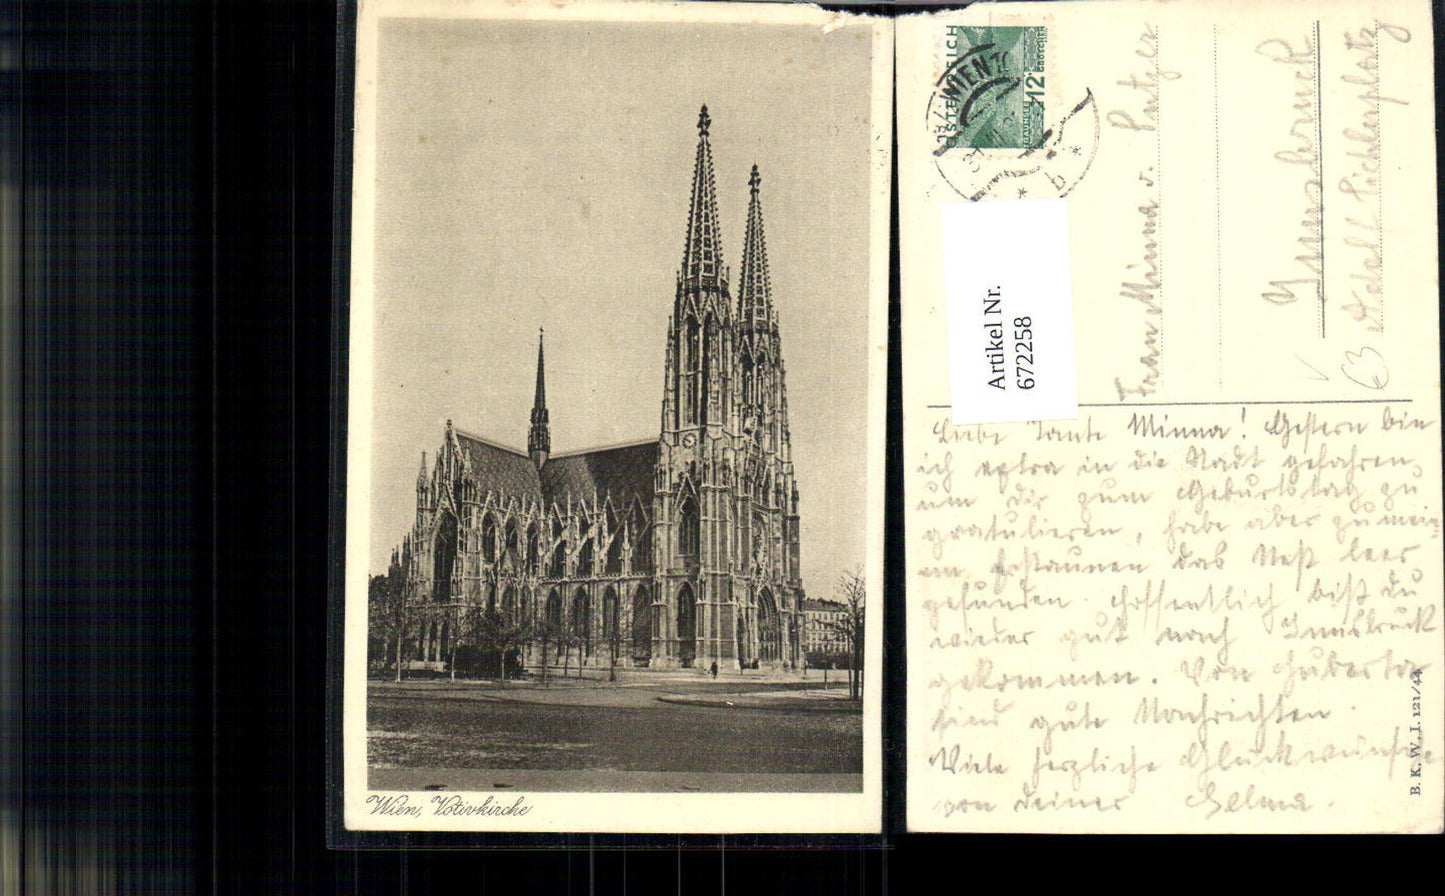 Wien, Votivkirche
ÖSTERREICH
12
GROSCHEN
TRAUNSEE
WIEN
b
Artikel Nr.
672258
Frau Minna v. Putzer
Innsbruck
Adolf Pichlerplatz
Liebe Tante Minna! Gestern bin
ich extra in die Stadt gefahren,
um Dir zum Geburtstag zu
gratulieren, habe aber zu mein-
em Erstaunen das Nest leer
gefunden. Hoffentlich bist Du
wieder gut nach Innsbruck
gekommen. Von Huberta
sind gute Nachrichten.
Viele herzliche Glückwünsche
von Deiner Helma.
B. K. W. I. 121/44